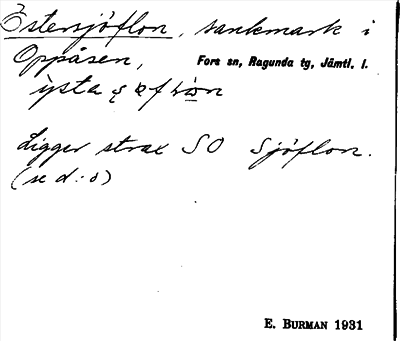 Östersjöflon, sankmark i
Oppåsen, Fors sn, Ragunda tg, Jämtl. l.
Ligger strax SO Sjöflon.
(se d. o)
E. BURMAN 1931